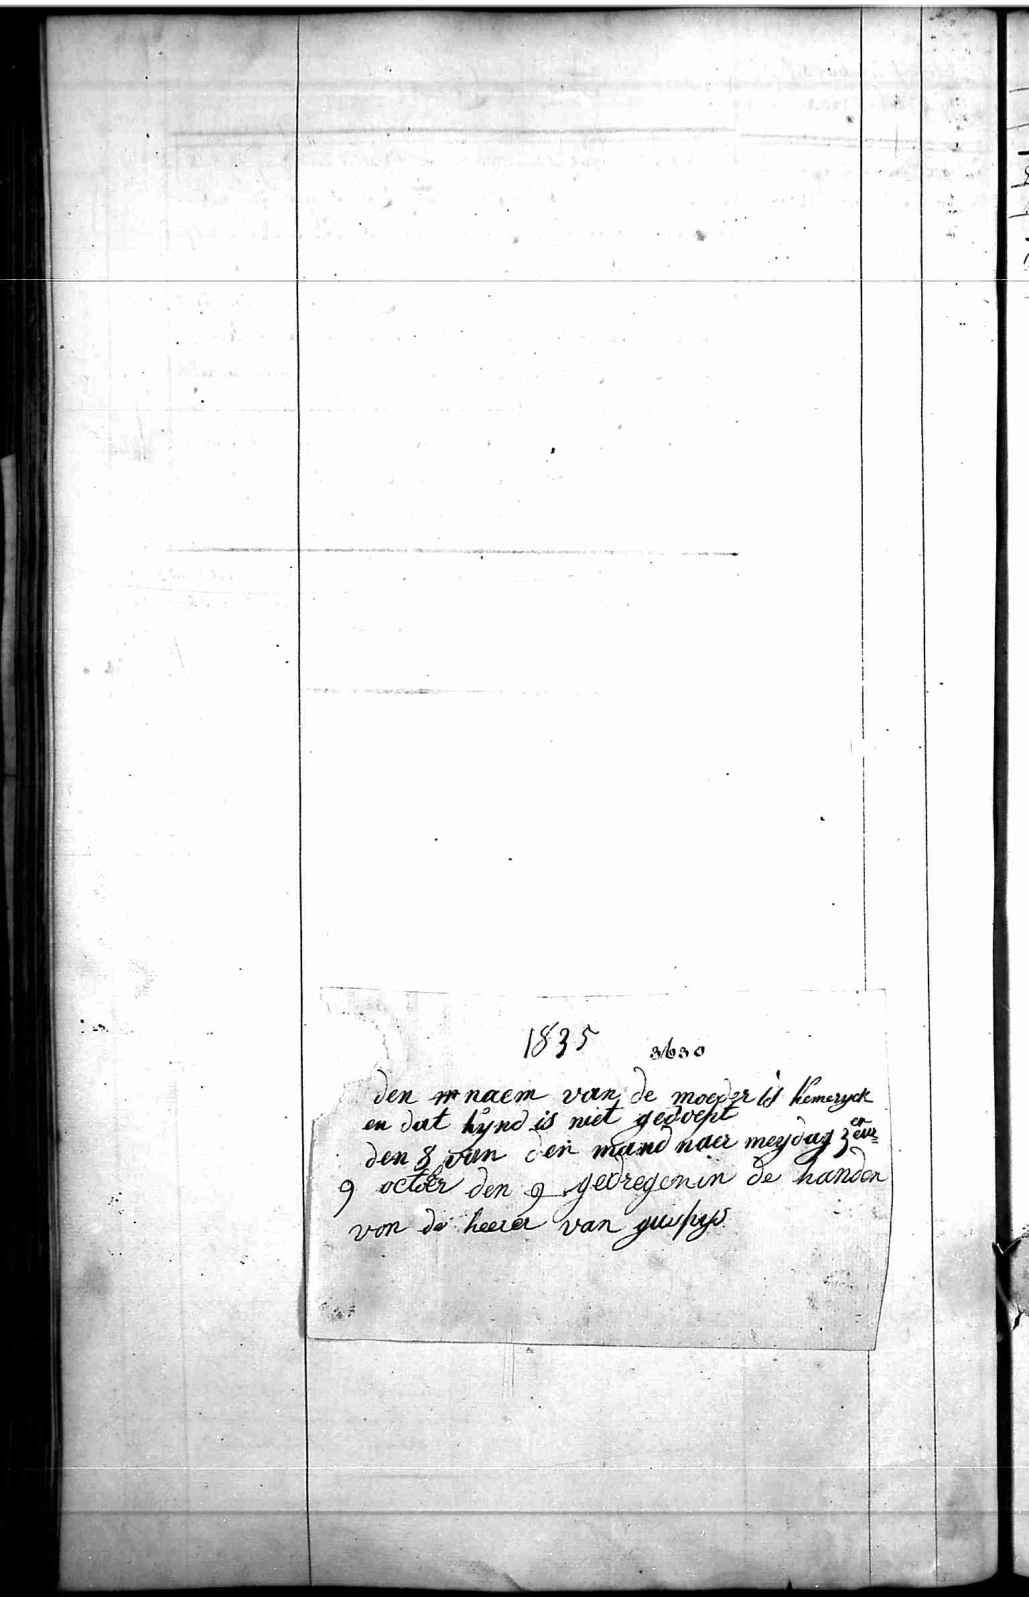 1835
3630
den naem van de moeder is hemeryck
en dat kynd is niet gedoept
den 8 van den mand naer meydag 3 eur
9 octber den 9 gedregen in de handen
von de heerer van gusHys